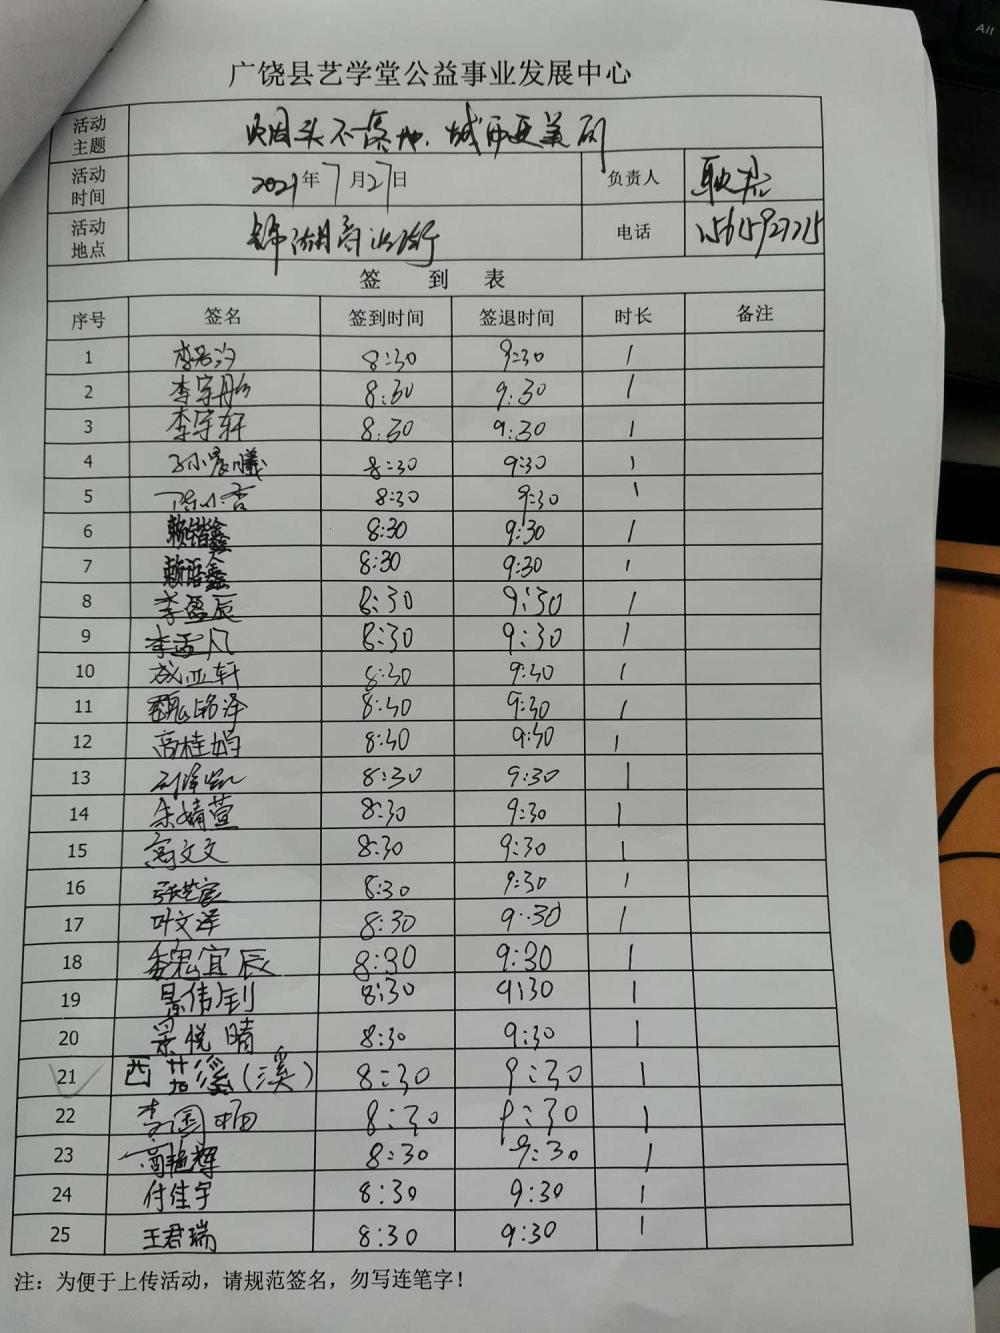 Alt
广饶县艺学堂公益事业发展中心
活动主题 烟头不落地、城市更美丽
活动时间 2021年7月27日 负责人
活动地点 锦湖商业街 电话 15615921715
签 到 表
序号 签名 签到时间 签退时间 时长 备注
1 8:30 9:30 1
2 李宇彤 8:30 9:30 1
3 李宇轩 8:30 9:30 1
4 孙晨曦 8:30 9:30 1
5 8:30 9:30 1
6 8:30 9:30 1
7 8:30 9:30 1
8 李盈辰 8:30 9:30 1
9 李孟凡 8:30 9:30 1
10 成亚轩 8:30 9:30 1
11 魏铭泽 8:30 9:30 1
12 高桂娟 8:30 9:30 1
13 8:30 9:30 1
14 朱婧萱 8:30 9:30 1
15 高文文 8:30 9:30 1
16 8:30 9:30 1
17 叶文泽 8:30 9:30 1
18 魏宜辰 8:30 9:30 1
19 景伟钊 8:30 9:30 1
20 景悦晴 8:30 9:30 1
21 西若溪(溪) 8:30 9:30 1
22 8:30 9:30 1
23 8:30 9:30 1
24 付佳宇 8:30 9:30 1
25 王君瑞 8:30 9:30 1
注：为便于上传活动，请规范签名，勿写连笔字！